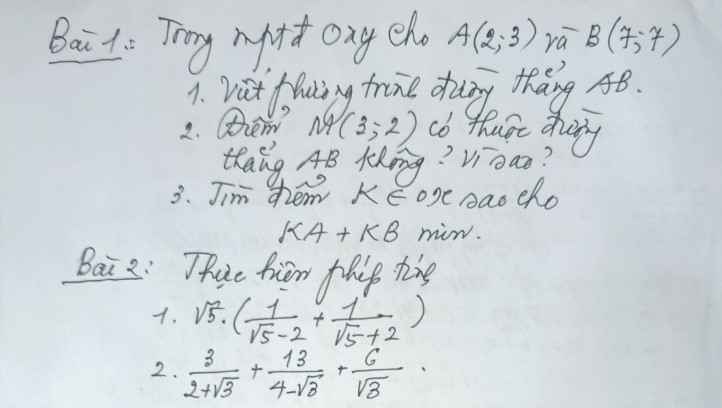 Bài 1: Trong mptđ Oxy cho A(2;3) và B(7;7)
1. Viết phương trình đường thẳng AB.
2. Điểm M(3;2) có thuộc đường
thẳng AB không? Vì sao?
3. Tìm điểm K ∈ Ox sao cho
KA + KB min.
Bài 2: Thực hiện phép tính
1. √5.(1/(√5-2) + 1/(√5+2))
2. 3/(2+√3) + 13/(4-√3) + 6/√3.